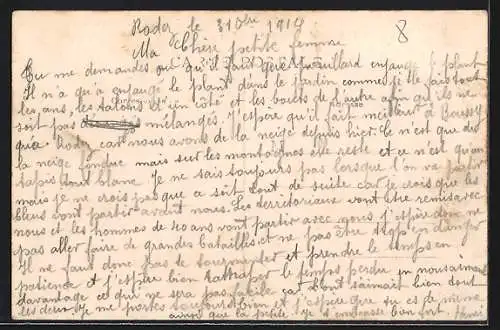 Rodez le 31 Dbre 1914
8
Ma Chère petite femme
Tu me demandes où qu'il faut que enfauge le plant
Il n'a qu'a enfauge le plant dans le jardin comme je le fais tout
les ans, les talons d'un côté et les bouts de l'autre afin qu'ils ne
soit pas mélangés. J'espère qu'il fait meilleur à Boussy
qua Rodez car nous avons de la neige depuis hier. Ce n'est que de
la neige fondue mais sur les montagnes elle reste et ce n'est qu'un
tapis tout blanc. Je ne sais toujours pas lorsque l'on va partir
mais je ne crois pas que ça soit tout de suite car je crois que les
bleus vont partir avant nous. Les territoriaux vont être remis avec
nous et les hommes de 40 ans vont partir avec nous j'espère donc ne
pas aller faire de grandes batailles et ne pas être trop en danger
Il ne faut donc pas te tourmenter et prendre le temps en
patience et j'espère bien rattraper le temps perdu en nous aimant
davantage ce qui ne sera pas facile car l'on s'aimait bien dout
les deux. Je me portes toujours bien et j'espère que tu es de même
ainsi que la petite. Je t'embrasse bien fort Henri